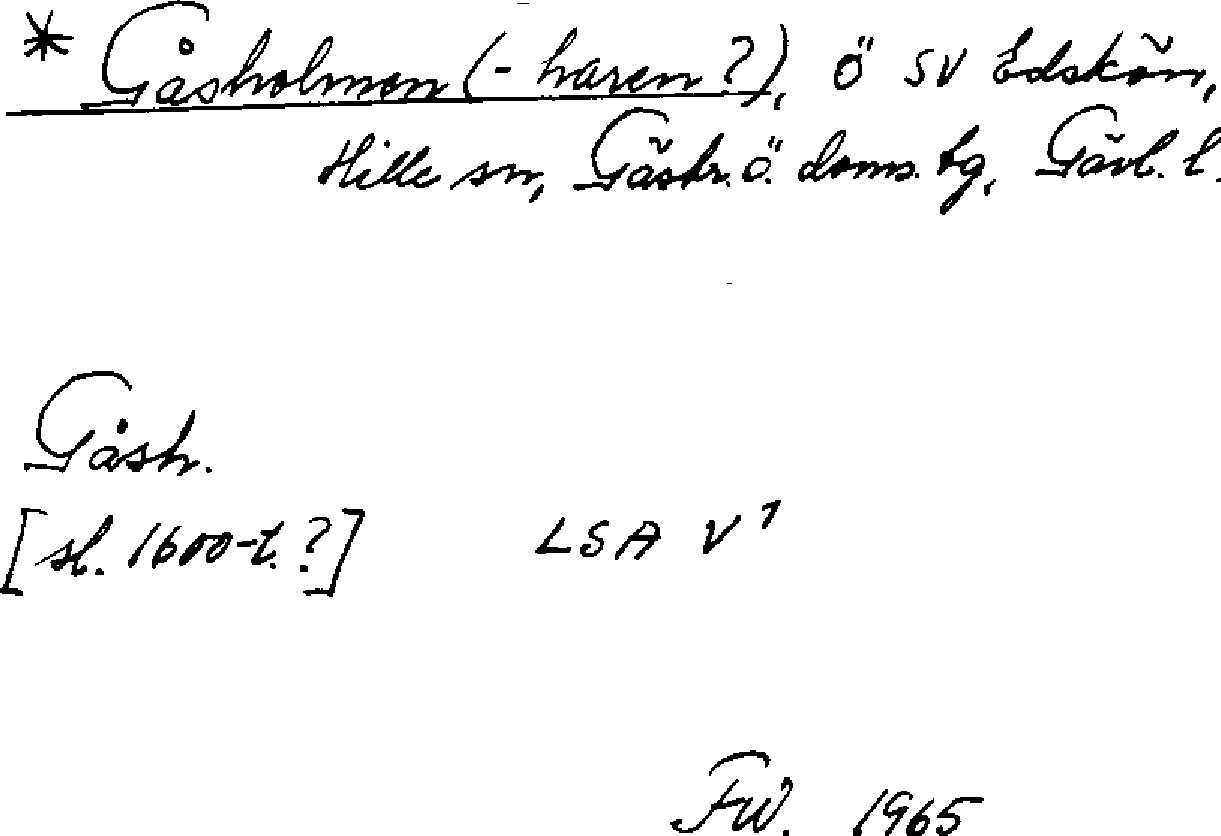 * Gåsholmen (-haren?), ö SV Edskön,
Hille sn, Gästr. ö. doms. tg, Gävl. l.
Gåsh.
[sl. 1600-t.?] LSA V¹
FW. 1965